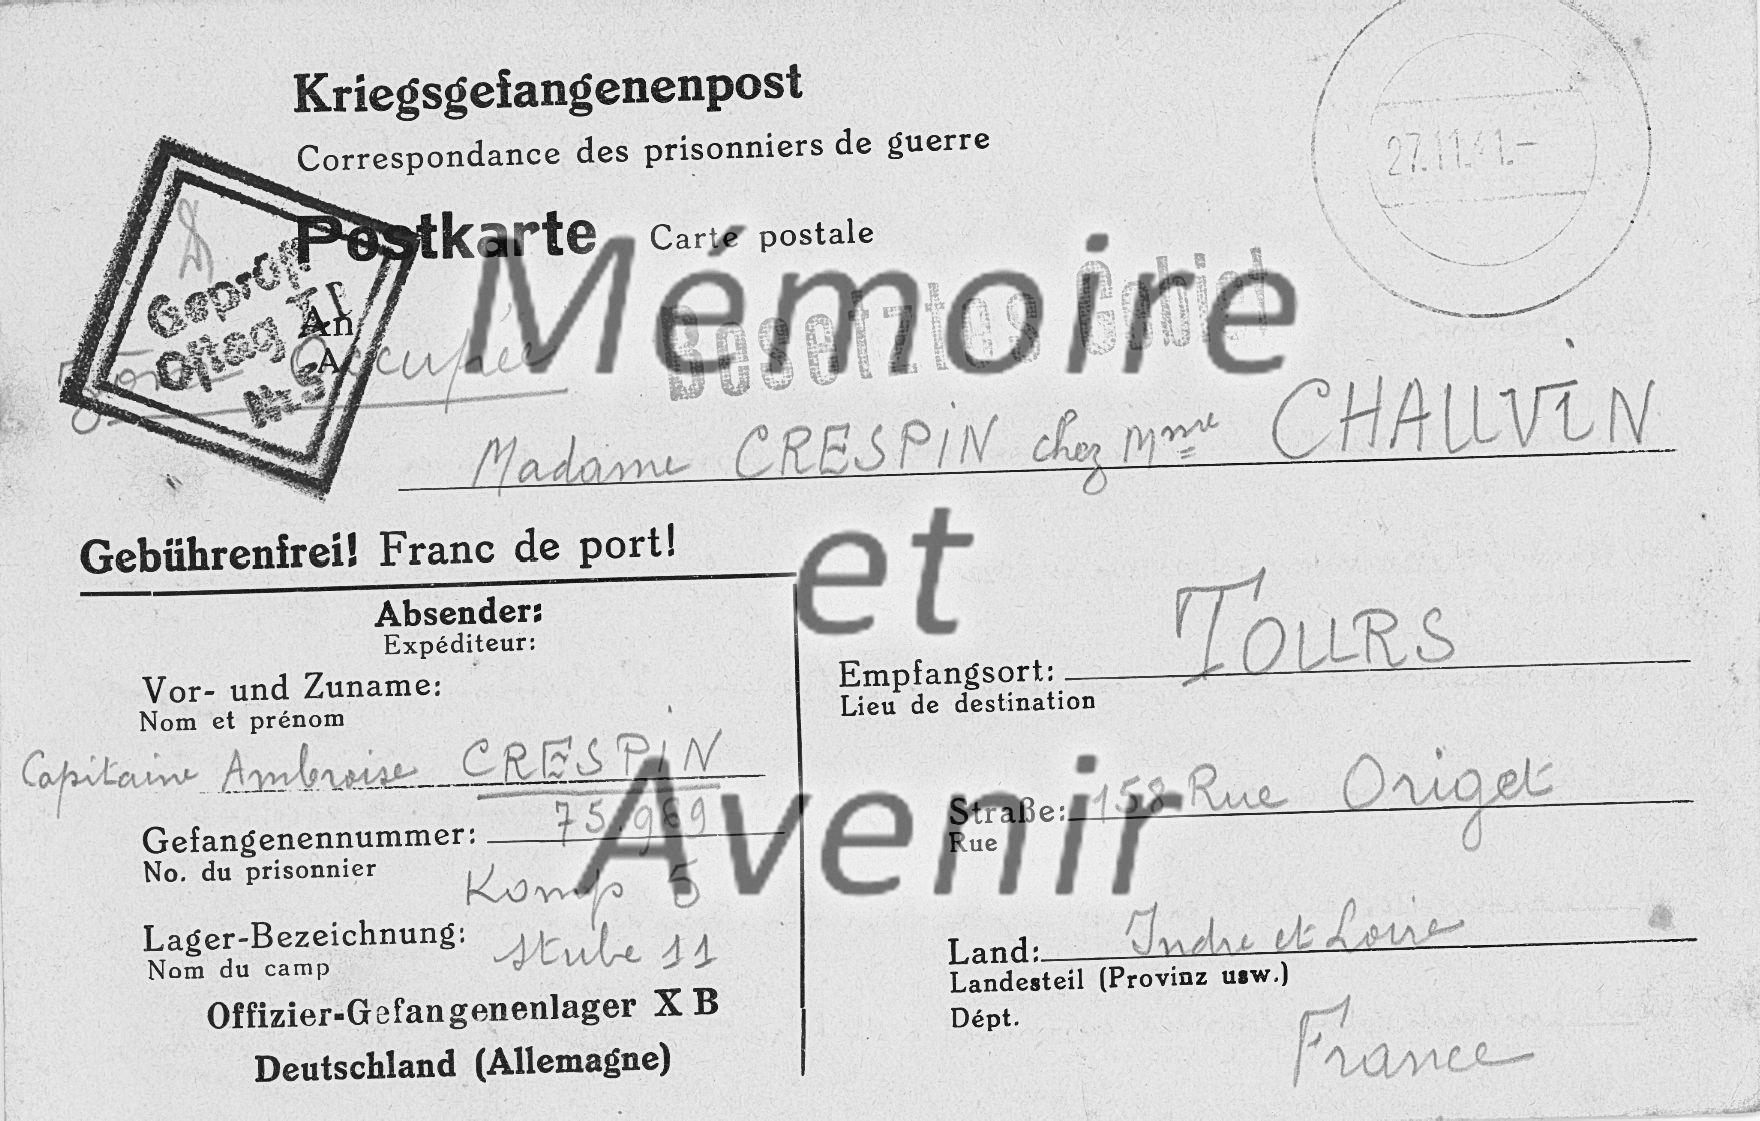 Kriegsgefangenenpost
Correspondance des prisonniers de guerre
27.11.41.-
Postkarte Carte postale
Geprüft
Oflag
Nr 5
An
A
Zone Occupée
Besetztes Gebiet
Mémoire
et
Avenir
Madame CRESPIN chez Mme CHAUVIN
Gebührenfrei! Franc de port!
Absender:
Expéditeur:
Vor- und Zuname:
Nom et prénom
Capitaine Ambroise CRESPIN
Gefangenennummer: 75.989
No. du prisonnier
Komp 5
Lager-Bezeichnung: stube 11
Nom du camp
Offizier-Gefangenenlager X B
Deutschland (Allemagne)
Empfangsort: TOURS
Lieu de destination
Straße: 158 Rue Origet
Rue
Land: Indre et Loire
Landesteil (Provinz usw.)
Dépt.
France